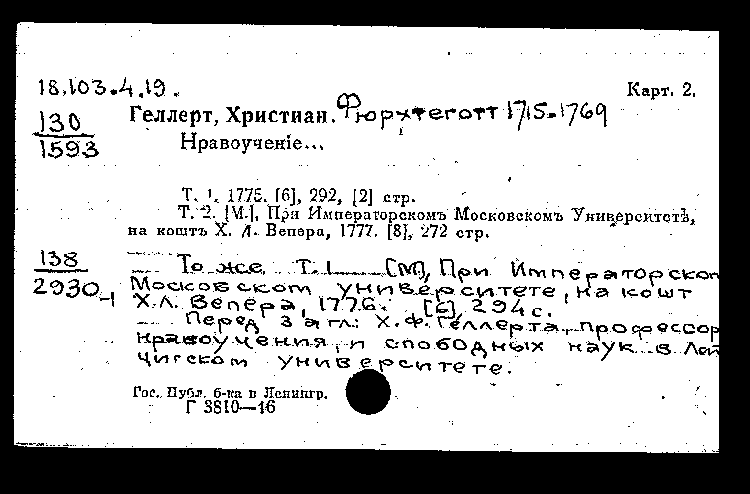 18.103.4.19.
Карт. 2.
130
1593
Геллерт, Христиан. Фюрхтеготт 1715-1769
Нравоученіе...
Т. 1. 1775. [6], 292, [2] стр.
Т. 2. [М.], При Императорскомъ Московскомъ Университетѣ,
на коштъ Х. Л. Вепера, 1777. [8], 272 стр.
138
2930-1
— То же. Т. I — [М], При Император­ском
Московском университете, на кошт
Х.Л. Вепера, 1776. [6], 294 с.
— Перед загл: Х.Ф. Геллерта, профессор
нравоучения, и слободных наук в Лей
чигском университете.
Гос. Публ. б-ка в Ленингр.
Г 3810—46